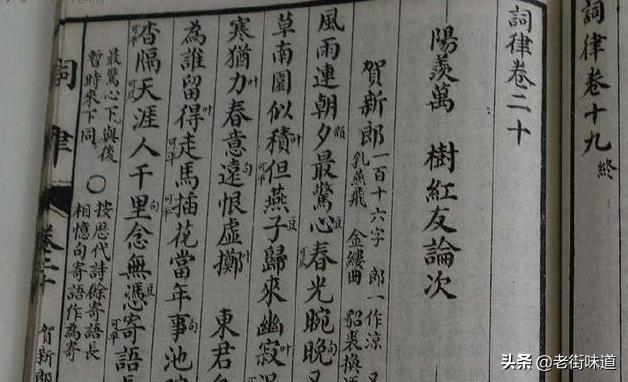 詞律卷十九 終
詞律卷二十
陽羨萬 樹紅友論次
賀新郎 一百十六字 郎一作涼
乳燕飛 金縷曲 貂裘換
風雨連朝夕最驚心豆春光晼晚
草南園似積叶但燕子豆歸來幽寂叶
寒猶力叶春意遠句恨虛擲叶 東君
為誰留得叶走馬插花當年事句池
杳隔天涯人千里句念無憑寄語長
最驚心下與後
暫時來下同
○
按歷代詩餘寄語長
相憶句寄語作為寄
詞律 卷二十 賀新郎
头条 @老街味道